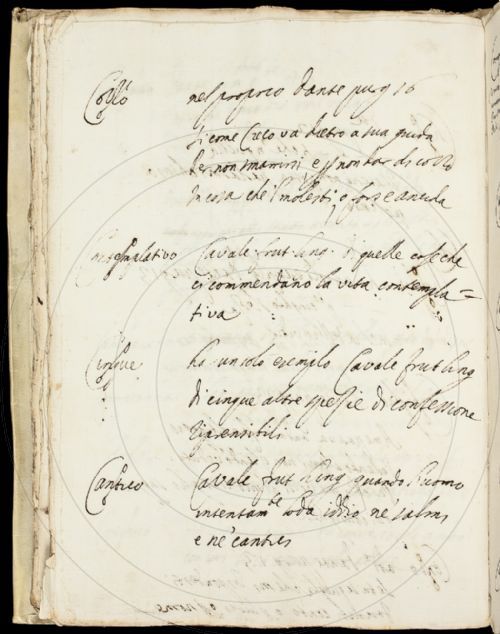 Cozzo nel proprio dante purg 16
si come Cieco va dietro a sua guida
per non smarrirsi e p non dar di cozzo
in cosa che 'l molesti o forse ancida
Contemplativo Cavalc. frut. ling. di quelle cose che
ci commendano la vita contempla=
tiva
Cinque ha un solo esemplo Cavalc frut ling
di cinque altre spezie di confessione
riprensibili
Cantico Cavalc frut ling quando l'uomo
intentamte loda iddio ne salmi
e ne cantici